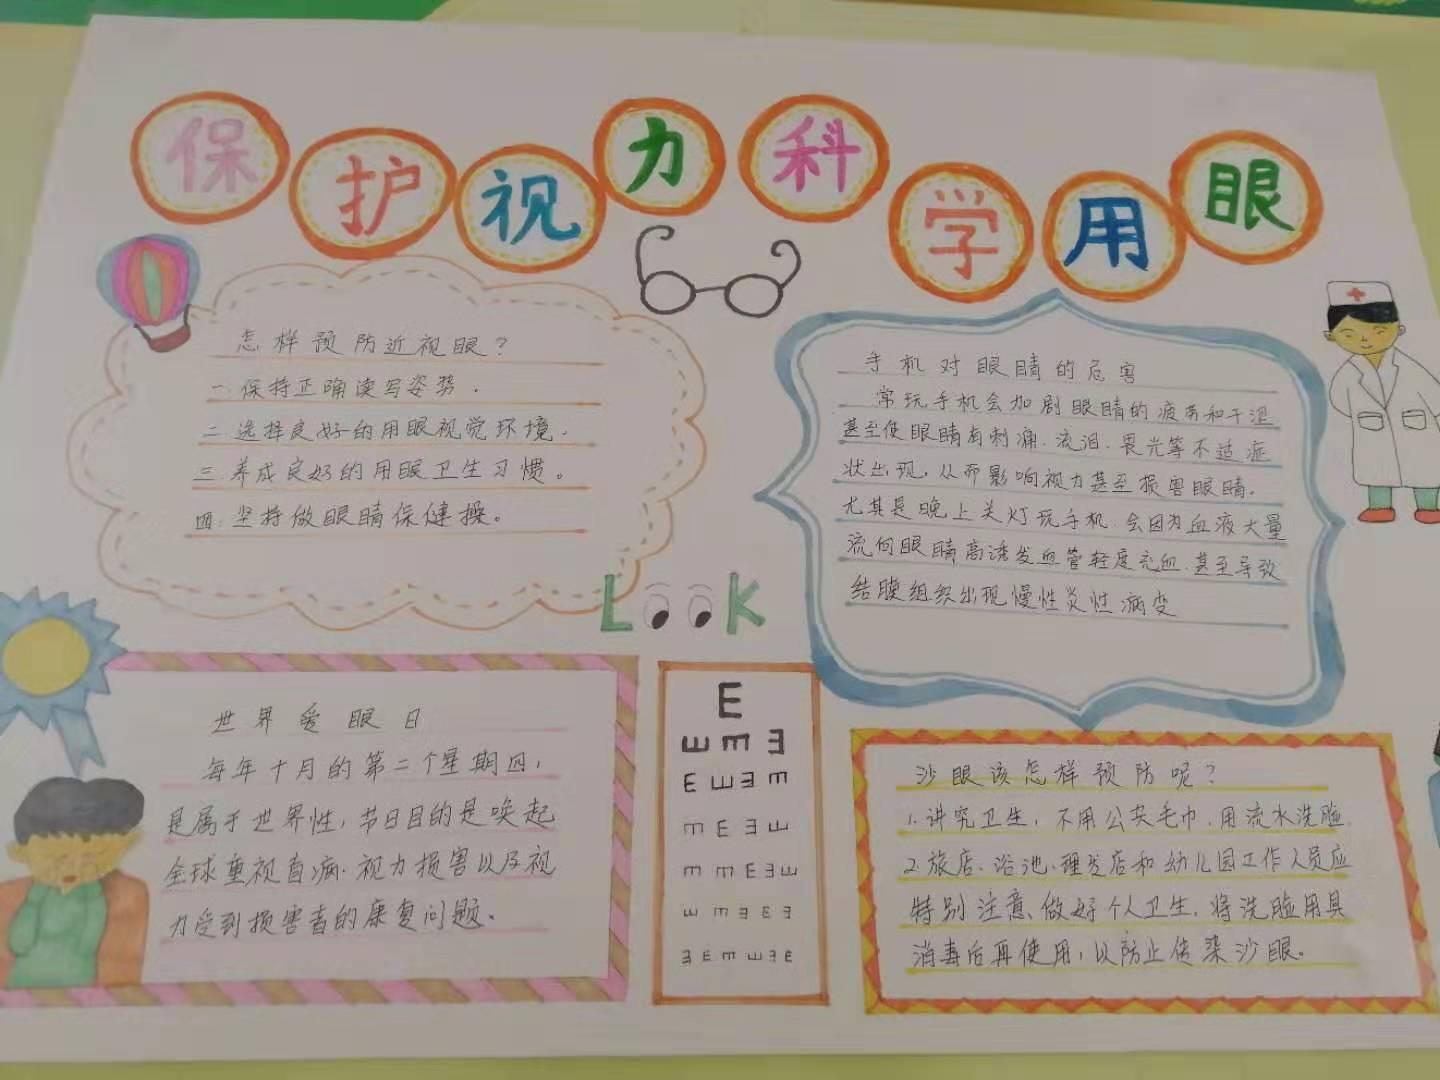 保护视力科学用眼
怎样预防近视眼？
一.保持正确读写姿势.
二.选择良好的用眼视觉环境.
三.养成良好的用眼卫生习惯。
四.坚持做眼睛保健操。
手机对眼睛的危害
常玩手机会加剧眼睛的疲劳和干涩
甚至使眼睛有刺痛、流泪、畏光等不适症
状出现，从而影响视力甚至损害眼睛。
尤其是晚上关灯玩手机，会因为血液大量
流向眼睛高诱发血管轻度充血，甚至导致
结膜组织出现慢性炎性病变
LOOK
世界爱眼日
每年十月的第二个星期四，
是属于世界性，节日目的是唤起
全球重视盲病、视力损害以及视
力受到损害者的康复问题。
E
E E E
E E E E
E E E E
E E E E E
E E E E E
E E E E E E
沙眼该怎样预防呢？
1.讲究卫生，不用公共毛巾，用流水洗脸.
2.旅店、浴池、理发店和幼儿园工作人员应
特别注意、做好个人卫生，将洗脸用具
消毒后再使用，以防止传染沙眼。